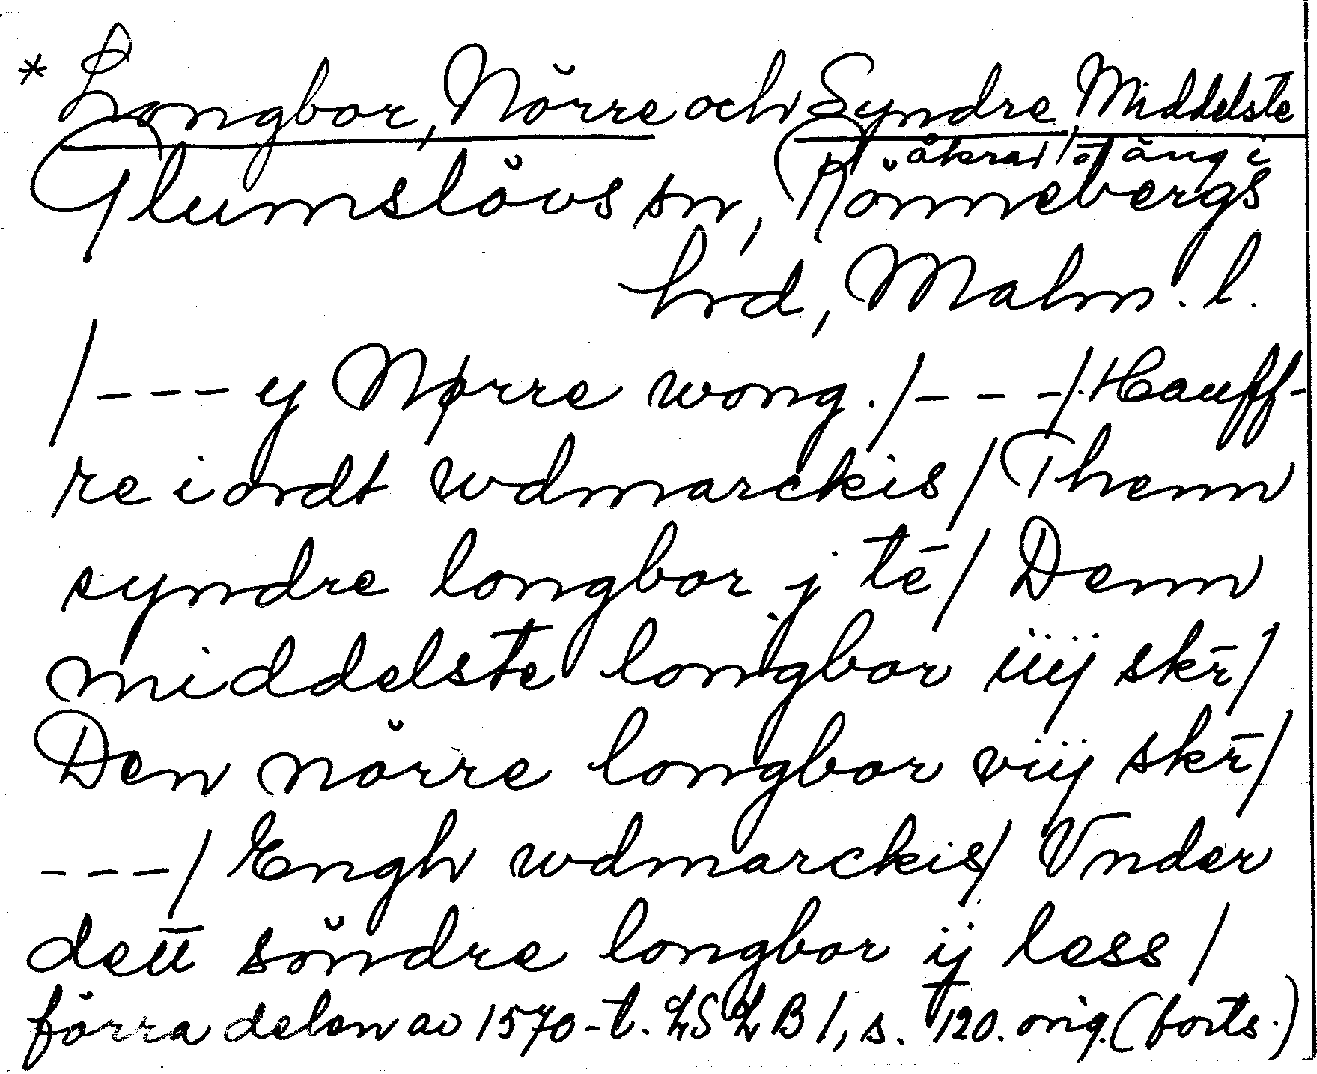 * Longbor, Nörre och Syndre, Middelste
åkrar o äng i
Glumslövs sn, Rönnebergs
hrd, Malm. l.
/--- y Nørre wong. /---/. Hauff-
re iordt wdmarckis / Thenn
syndre longbor j tē / Denn
middelste longbor iiij skr̄ /
Den nörre longbor viij skr̄ /
---/ Engh wdmarckis / Vnder
dett söndre longbor ij less /
förra delen av 1570-t. LSLB 1, s. 120. orig. (forts.)